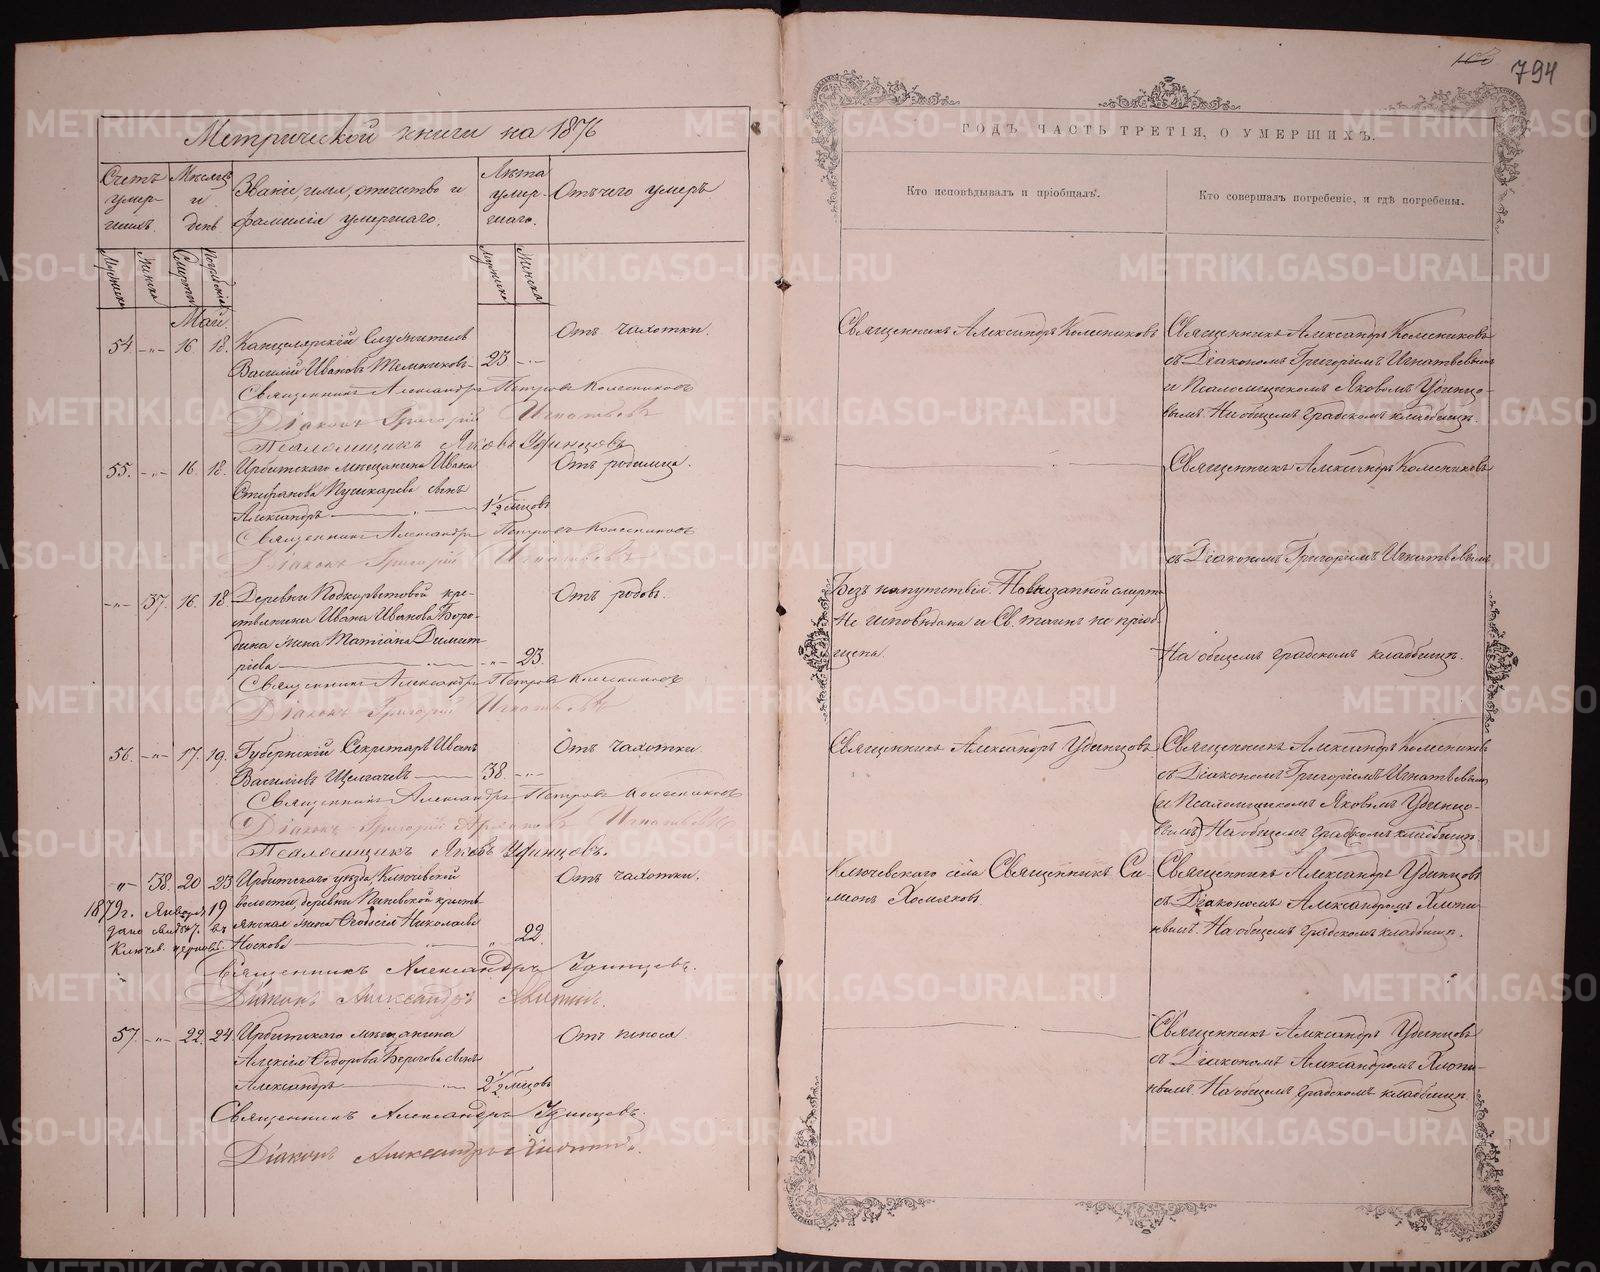 794
Метрической книги на 1876
ГОДЪ, ЧАСТЬ ТРЕТІЯ, О УМЕРШИХЪ.
Счетъ умер-шихъ.
Мѣсяцъ и день
Званіе, имя, отчество и фамилія умершаго.
Лѣта умер-шаго.
Отъ чего умеръ
Кто исповѣдывалъ и пріобщалъ.
Кто совершалъ погребеніе, и гдѣ погребены.
Мужеска
Женска
Смерти
Погребенія
Мужеска
Женска
Май.
54 -"- 16 18. Канцелярскій Служитель
Василій Ивановъ 23 -"-
Отъ чахотки.
Священникъ Александръ Колесниковъ
Священникъ Александръ Колесниковъ
съ Діакономъ Григоріемъ Игнатьевымъ
и Псаломщикомъ Яковомъ Удинцо-
вымъ. На общемъ градскомъ кладбищѣ.
Священникъ Александръ Петровъ Колесниковъ
Діаконъ Григорій Игнатьевъ
Псаломщикъ Яковъ Удинцовъ
55. -"- 16 18. Ирбитскаго мѣщанина Ивана
Стефанова Пушкарева сынъ
Александръ 1½ мѣсцовъ
Отъ родимца.
Священникъ Александръ Колесниковъ
съ Діакономъ Григоріемъ Игнатьевымъ
Священникъ Александръ Петровъ Колесниковъ
Діаконъ Григорій Игнатьевъ
-"- 37. 16. 18 Деревни Подкорытовой кре-
стьянина Ивана Иванова Боро-
дина жена Татіана Димит-
ріева -"- 23.
Отъ родовъ.
Безъ напутствія. По внезапной смерти
Не исповѣдана и Св. таинъ не пріоб-
щена.
На общемъ градскомъ кладбищѣ.
Священникъ Александръ Петровъ Колесниковъ
Діаконъ Григорій Игнатьевъ
56. -"- 17. 19. Губернскій Секретарь Иванъ
Василіевъ 38. -"-
Отъ чахотки.
Священникъ Александръ Удинцовъ
Священникъ Александръ Колесниковъ
съ Діакономъ Григоріемъ Игнатьевымъ
(и Псаломщикомъ Яковомъ Удинцо-
вымъ) На общемъ градскомъ кладбищѣ.
Священникъ Александръ Петровъ Колесниковъ
Діаконъ Григорій Игнатьевъ
Псаломщикъ Яковъ Удинцовъ.
-"- 38. 20 23 Ирбитскаго уѣзда, Ключевской
волости, деревни кресть-
янская жена Феодосія Николаева
Носкова " 22.
Отъ чахотки.
1879 г. Января 19
дано свид. въ
Ключев.
Ключевскаго села Священникъ Си-
меонъ Хомяковъ.
Священникъ Александръ Удинцовъ
съ Діакономъ Александромъ
На общемъ градскомъ кладбищѣ.
Священникъ Александръ Удинцовъ.
Діаконъ Александръ
57. -"- 22. 24. Ирбитскаго мѣщанина
Алексія Ѳедорова сынъ
Александръ 2½ мѣсцовъ
Отъ поноса
Священникъ Александръ Удинцовъ
съ Діакономъ Александромъ
На общемъ градскомъ кладбищѣ.
Священникъ Александръ Удинцовъ.
Діаконъ Александръ
METRIKI.GASO-URAL.RU